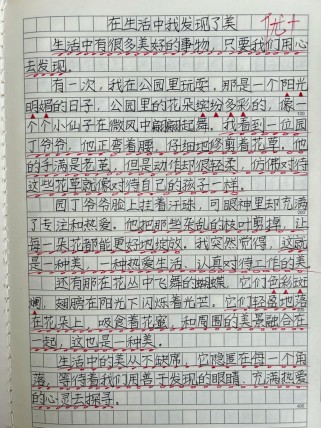 在生活中我发现了美
优+
生活中有很多美好的事物，只要我们用心
去发现。
有一次，我在公园里玩耍，那是一个阳光
明媚的日子，公园里的花朵缤纷多彩的，像一
个个小仙子在微风中翩翩起舞。我看到一位园
丁爷爷，他正弯着腰，仔细地修剪着花草，他
的手满是老茧，但是动作却很轻柔，仿佛对待
这些花草就像对待自己的孩子一样。
园丁爷爷脸上挂着汗珠，可眼神里却充满
了专注和热爱。他把那些杂乱的枝叶剪掉，让
每一朵花都能更好地绽放。我突然觉得，这就
是一种美，一种热爱生活、认真对待工作的美
还有那在花丛中飞舞的蝴蝶，它们色彩斑
斓，翅膀在阳光下闪烁着光芒，它们轻盈地落
在花朵上，吸食着花蜜，和周围的美景融合在
一起，这也是一种美。
生活中的美从不缺席，它隐匿在每一个角
落，等待着我们用善于发现的眼睛、充满热爱
的心灵去探寻。
400